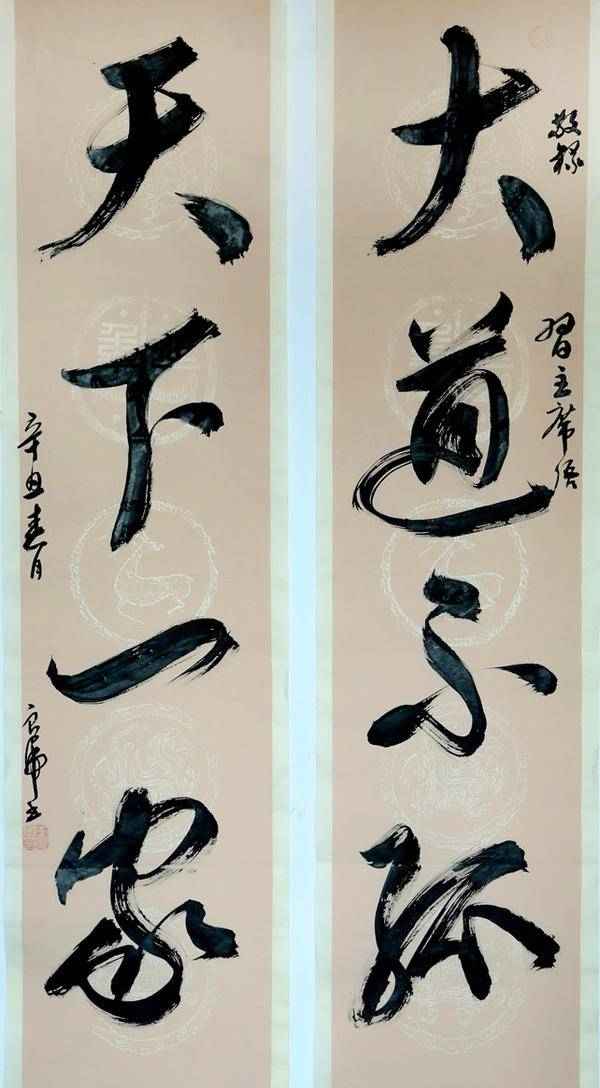 大道不孤
敬錄
習主席語
天下一家
辛丑春月